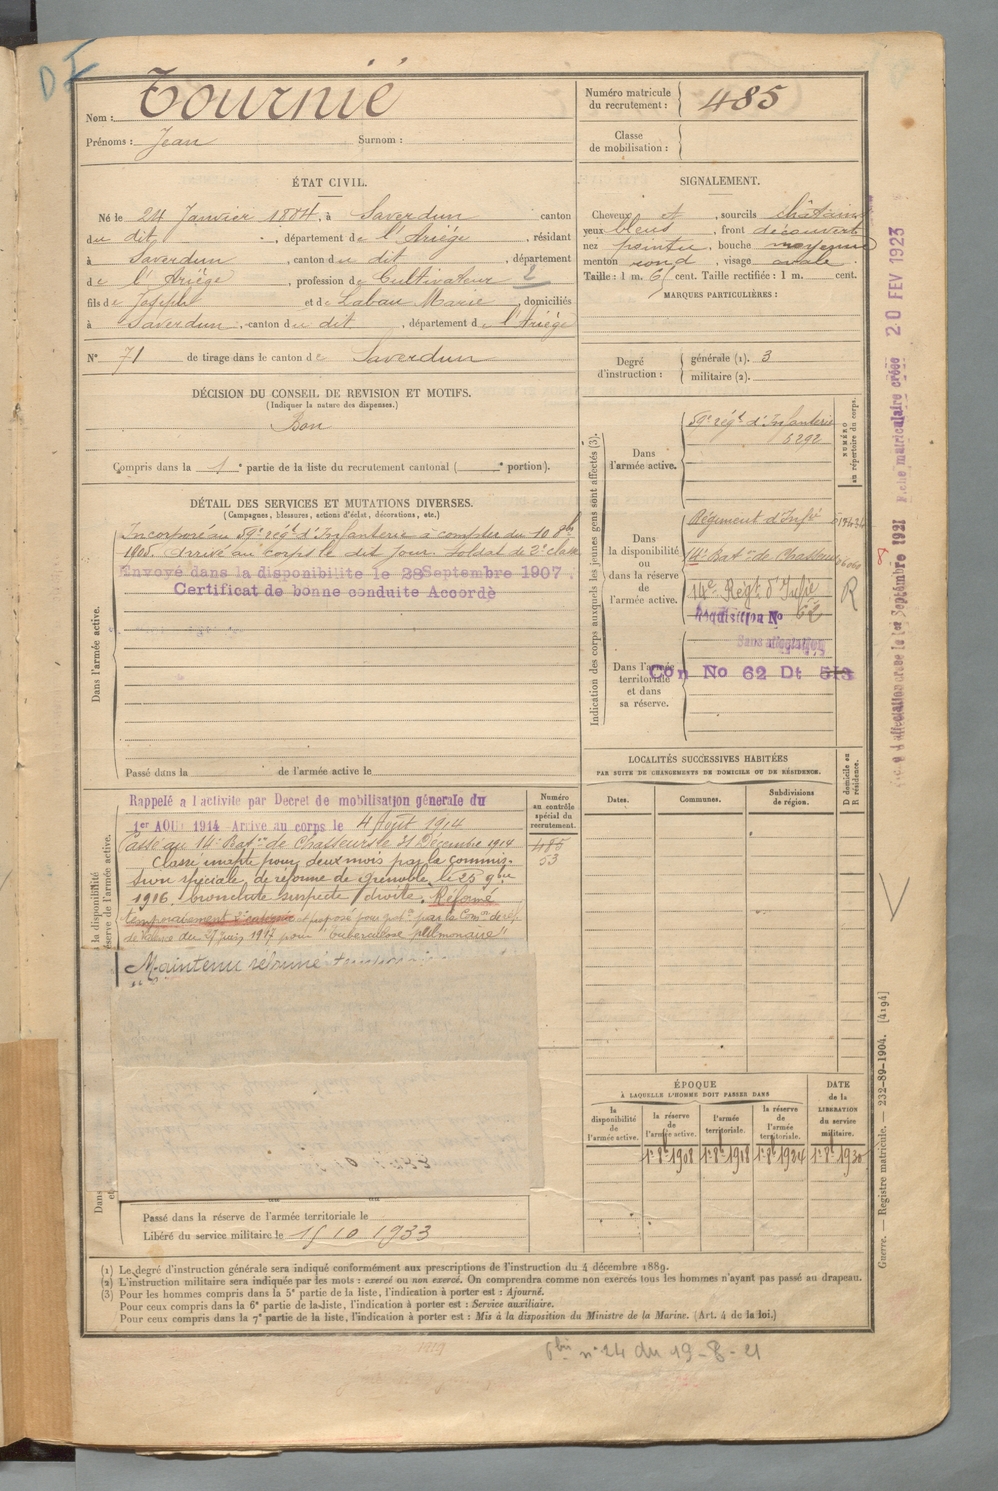 DF
Nom : Tournié
Prénoms : Jean Surnom :
Numéro matricule du recrutement : 485
Classe de mobilisation :
ÉTAT CIVIL.
Né le 24 Janvier 1884, à Saverdun canton
du dit, département de l'Ariége, résidant
à Saverdun, canton du dit, département
de l'Ariége, profession de Cultivateur 2
fils de Joseph et de Labau Marie, domiciliés
à Saverdun, canton du dit, département de l'Ariége
N° 71 de tirage dans le canton de Saverdun
SIGNALEMENT.
Cheveux et, sourcils châtains
yeux bleus, front découvert
nez pointu, bouche moyenne
menton rond, visage ovale.
Taille : 1 m. 65 cent. Taille rectifiée : 1 m. cent.
MARQUES PARTICULIÈRES :
Degré d'instruction : générale (1). 3
militaire (2).
DÉCISION DU CONSEIL DE REVISION ET MOTIFS.
(Indiquer la nature des dispenses.)
Bon
Compris dans la 1e partie de la liste du recrutement cantonal ( e portion).
DÉTAIL DES SERVICES ET MUTATIONS DIVERSES.
(Campagnes, blessures, actions d'éclat, décorations, etc.)
Dans l'armée active.
Incorporé au 59e régt d'Infanterie à compter du 10 8bre
1905. Arrivé au corps le dit jour. Soldat de 2e classe
Envoyé dans la disponibilite le 28 Septembre 1907.
Certificat de bonne conduite Accordé
Passé dans la de l'armée active le
Indication des corps auxquels les jeunes gens sont affectés (3).
NUMÉRO au répertoire du corps.
Dans l'armée active.
59e régt d'Infanterie
6292
Dans la disponibilité ou dans la réserve de l'armée active.
Régiment d'Infie
14e Baton de Chasseurs
14e Régt d'Infie R
Réquisition No 62
Sans affectation
Dans l'armée territoriale et dans sa réserve.
Con No 62 Dt 513
LOCALITÉS SUCCESSIVES HABITÉES
PAR SUITE DE CHANGEMENTS DE DOMICILE OU DE RÉSIDENCE.
Dates. Communes. Subdivisions de région. D domicile ou R résidence.
Numéro au contrôle spécial du recrutement.
485
53
Rappelé a l'activite par Decret de mobilisation générale du
1er AOUT 1914 Arrive au corps le 4 Août 1914
Passé au 14e Baton de Chasseurs le 21 Décembre 1914
Classé inapte pour deux mois par la commis-
sion spéciale de réforme de grenoble le 25 9bre
1916. bronchite suspecte droite. Réformé
temporairement 2e catégorie et proposé pour par la Com de réf
de du 27 juin 1917 pour "tuberculose pulmonaire"
Maintenu réformé
Passé dans la réserve de l'armée territoriale le
Libéré du service militaire le 15 10 1933
ÉPOQUE
À LAQUELLE L'HOMME DOIT PASSER DANS
la disponibilité de l'armée active. la réserve de l'armée active. l'armée territoriale. la réserve de l'armée territoriale.
DATE de la LIBÉRATION du service militaire.
1er 8bre 1908 1er 8bre 1918 1er 8bre 1924 1er 8bre 1930
(1) Le degré d'instruction générale sera indiqué conformément aux prescriptions de l'instruction du 4 décembre 1889.
(2) L'instruction militaire sera indiquée par les mots : exercé ou non exercé. On comprendra comme non exercés tous les hommes n'ayant pas passé au drapeau.
(3) Pour les hommes compris dans la 5e partie de la liste, l'indication à porter est : Ajourné.
Pour ceux compris dans la 6e partie de la liste, l'indication à porter est : Service auxiliaire.
Pour ceux compris dans la 7e partie de la liste, l'indication à porter est : Mis à la disposition du Ministre de la Marine. (Art. 4 de la loi.)
6bis n° 24 du 19-8-21
Fiche matriculaire créée 20 FEV 1923
Guerre. — Registre matricule. — 232-89-1904. [4194]